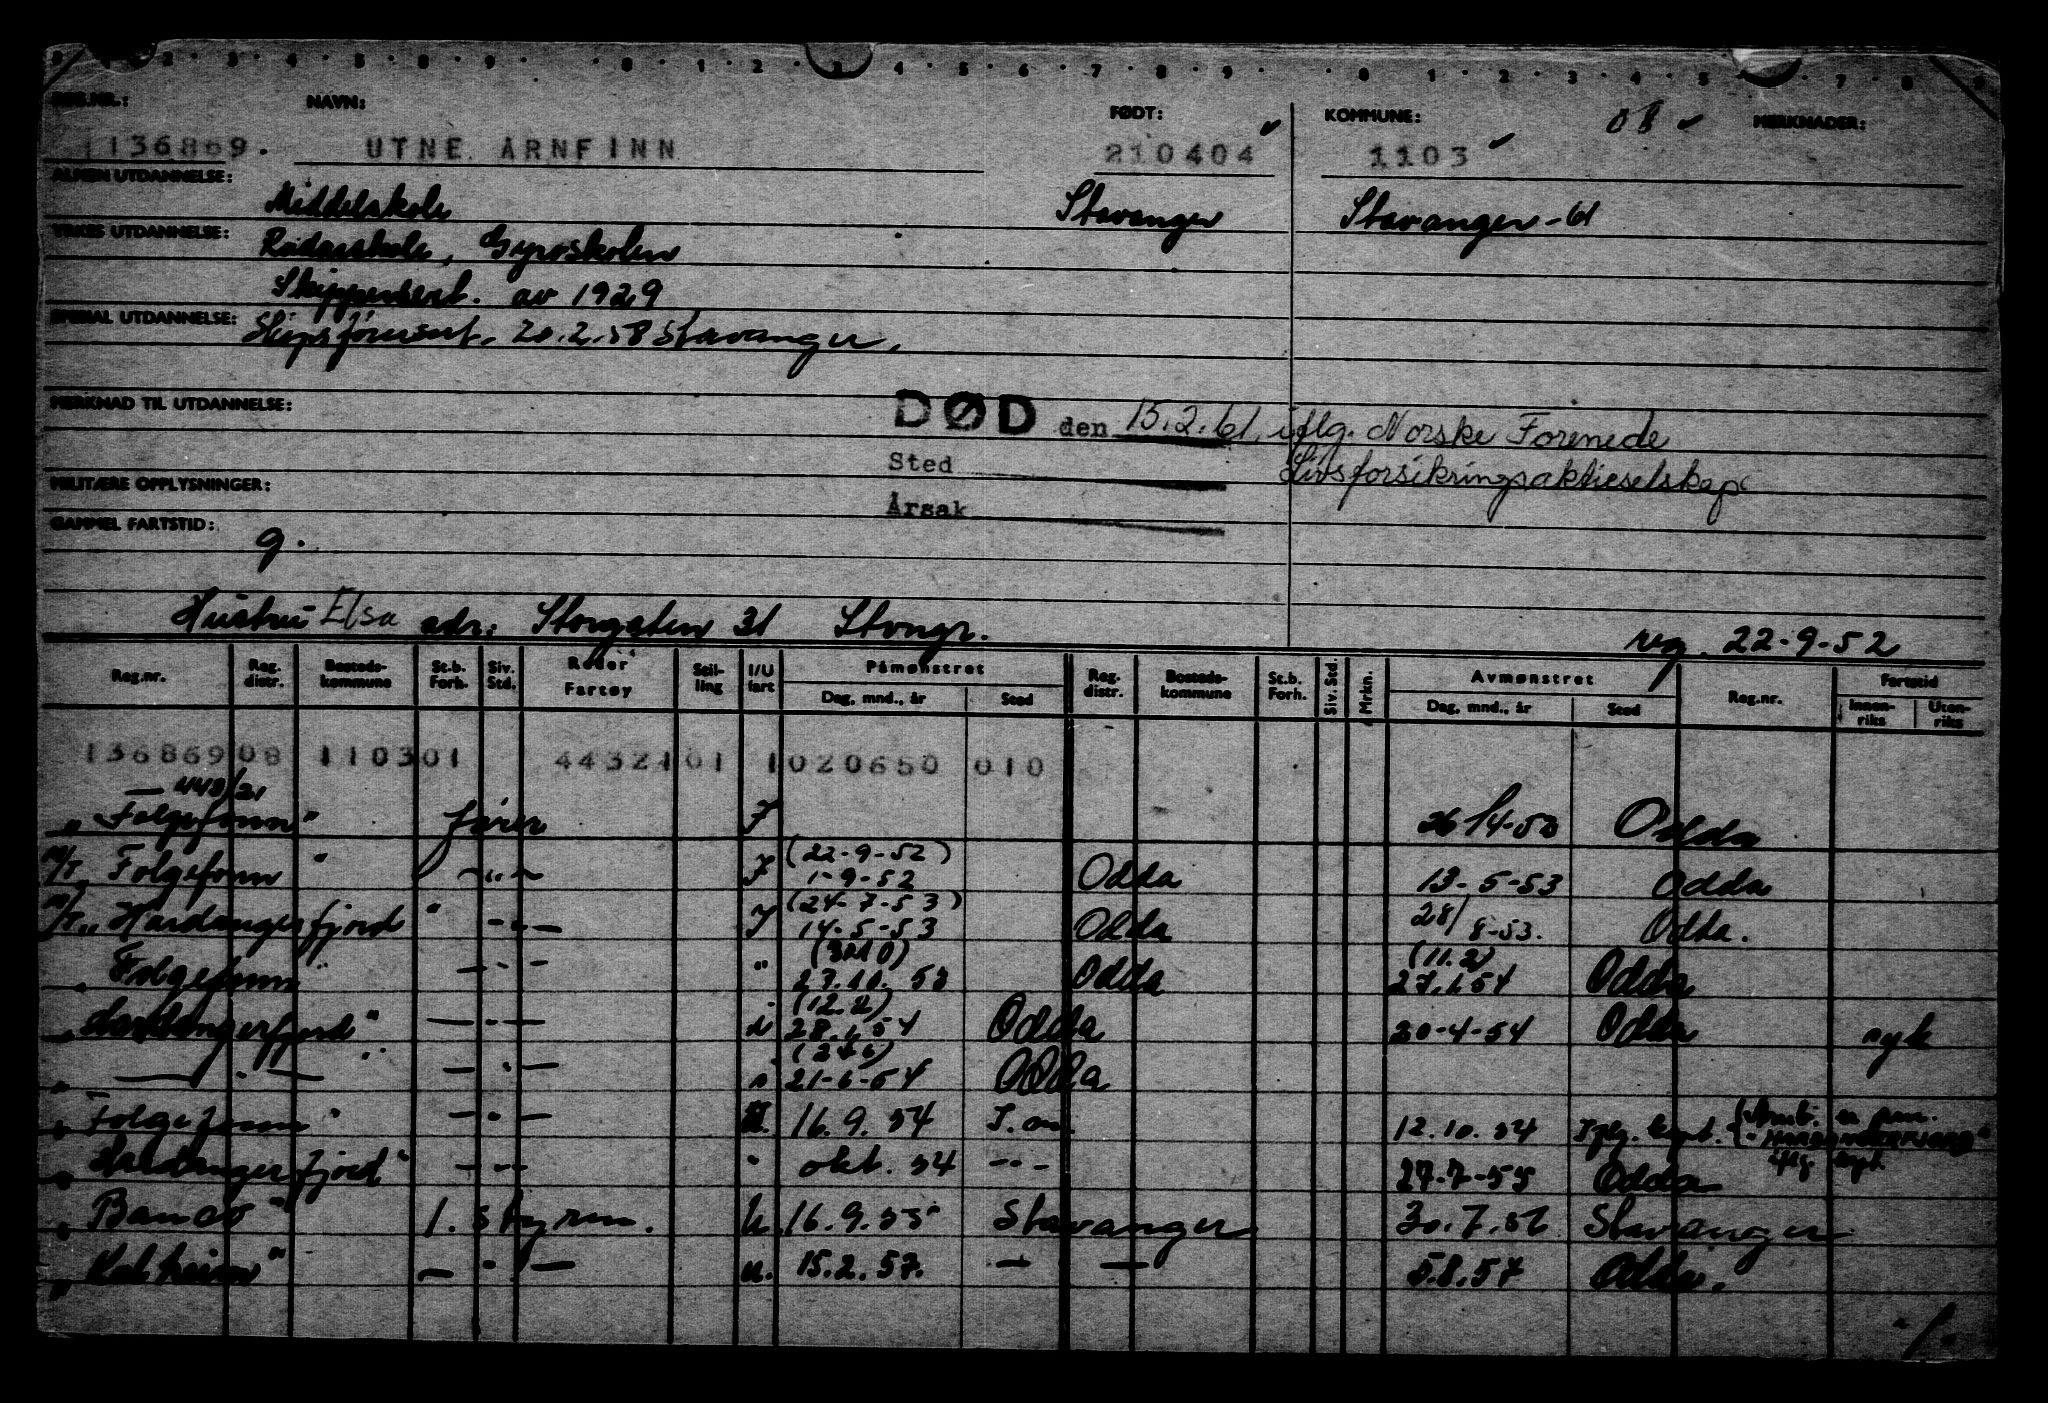 REG.NR.: NAVN: FØDT: KOMMUNE: 08 MERKNADER:
136869. UTNE ARNFINN 210404 1103
ALMEN UTDANNELSE: Middelskole Stavanger Stavanger - 61
YRKES UTDANNELSE: Radarskole, Gyroskolen
Skippersert. av 1929
SPESIAL UTDANNELSE: Skipsförersert. 20.2.58 Stavanger.
MERKNAD TIL UTDANNELSE: DØD den 15.2.61. iflg. Norske Forenede
Sted Livsforsikringsaktieselskap
MILITÆRE OPPLYSNINGER: Årsak
GAMMEL FARTSTID: g.
Hustru Elsa adr: Storgaten 31 Stvngr. reg. 22-9-52
Reg.nr. Reg. distr. Bosteds- kommune St.b. Forh. Siv. Std. Reder Fartøy Stil- ling I/U fart Påmønstret Reg. distr. Bosteds- kommune St.b. Forh. Siv. Std. Mrkn. Avmønstret Reg.nr. Fartstid
Dag, mnd., år Sted Dag, mnd., år Sted Innen- riks Uten- riks
136869 08 110301 4432101 1020650 010
" Folgefonn " fører 26/4-50 Odda
M/T Folgefonn " - " - (22-9-52) 1-9-52 Odda 13-5-53 Odda
M/T " Hardangerfjord " - " - (24-7-53) 14-5-53 Odda 28/8-53. Odda.
" Folgefonn " - " - " 27.10.53 Odda (11.2) 27.1.54 Odda
" Hardangerfjord " - " - (12.2) 28.1.54 Odda 20-4-54 Odda syk
" - " - - " - 21-6-54 Odda
" Folgefonn " - " - 16.9.54 12.10.54 HARDANGERFJORD"
" Hardangerfjord " - " - " okt. 54 - " - 27-7-55 Odda
" Banco " 1. styrm. u. 16.9.55 Stavanger 30.7.56 Stavanger
" - " - u. 15.2.57. - " - 5.8.57 Odda.
./.